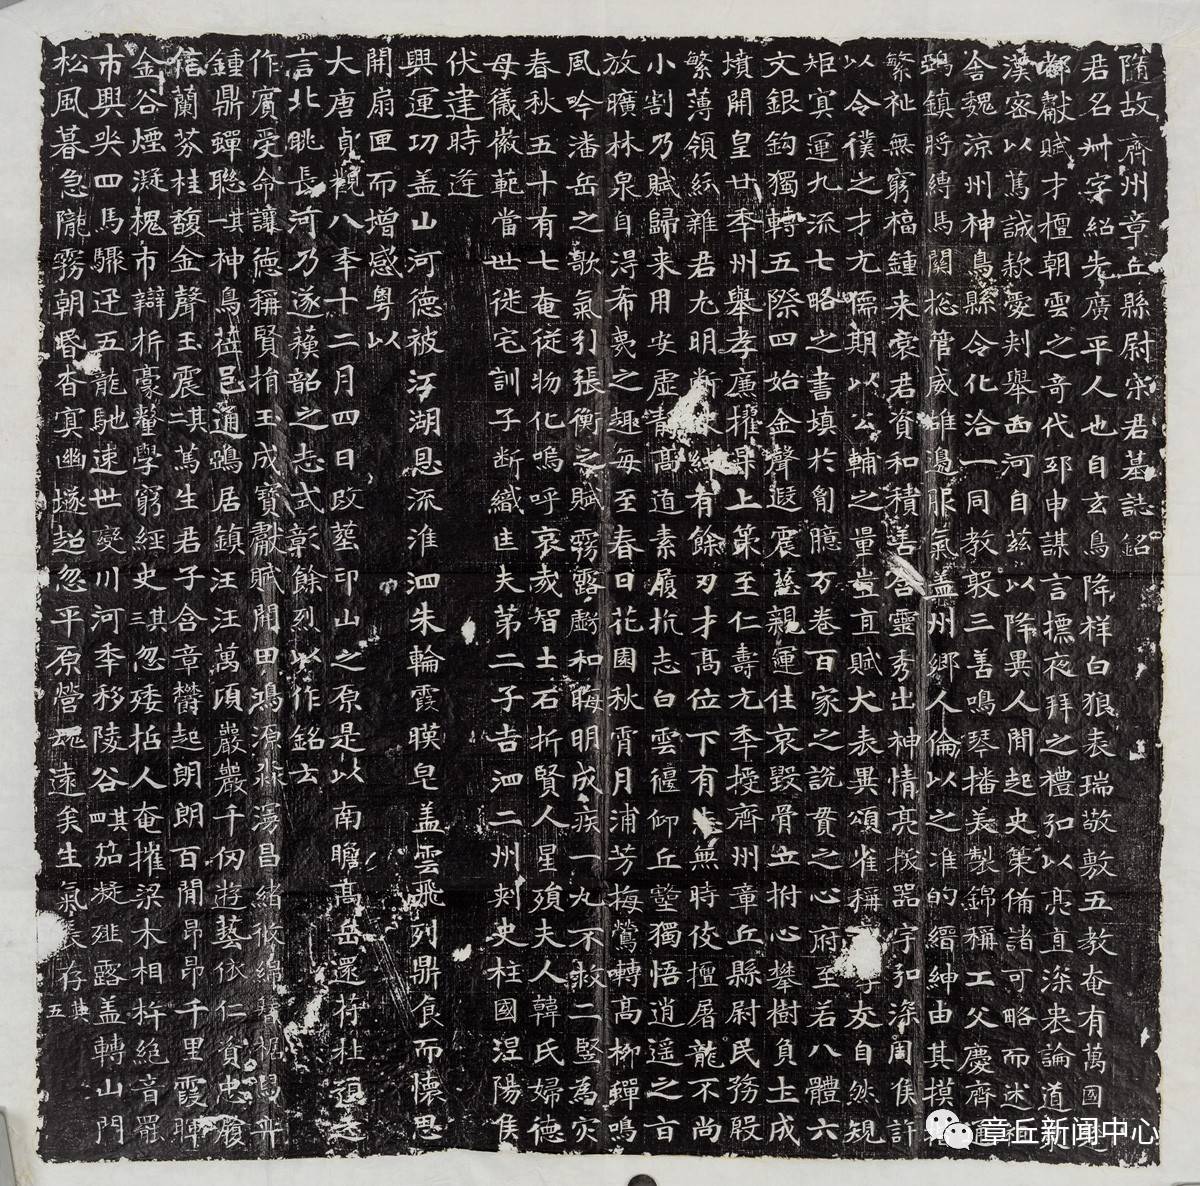 隋故齊州章丘縣尉宋君墓誌銘
君名州字紹先廣平人也自玄鳥降祥白狼表瑞敬敷五教奄有萬國
都獻賦才檀朝雲之奇代邳申謀言摽夜拜之禮弘以亮直深衷論道
漢密以篤誠款愛刾舉西河自茲以降異人間起史策俻諸可略而述
舍魏涼州神鳥縣令化洽一同教敭三善鳴琴播美製錦稱工父慶齊
鎮將縛馬關捴管威雄邊服氣盖州鄉人倫以之准的縉紳由其摸
繁祉無窮福鍾来裔君資和積善咨靈秀出神情亮拔器宇弘深周侯許
以令僕之才尢儒期以公輔之量豈直賦大表異頌雀稱友自然規
矩㝠運九流七略之書填於匈臆万卷百家之説貫之心府至若八體六
文銀鈎獨轉五際四始金聲遐震慈親運往哀毀骨立拊心攀樹負土成
墳開皇廿季州舉孝廉擢第上策至仁壽元季授齊州章丘縣尉民務殷
繁薄領紛雜君尤明斷有餘刃才高位下有志無時佼擅屠龍不尚
小割乃賦歸来用安虛清髙道素履抗志白雲偃仰丘壑獨悟逍遥之旨
放曠林泉自淂希夷之趣每至春日花園秋霄月浦芳梅鶯轉髙柳蟬鳴
風吟潘岳之歌氣引張衡之賦霧露虧和晦明成疾一九不救二竪為灾
春秋五十有七奄従物化嗚呼哀哉智士石折賢人星殞夫人韓氏婦德
母儀徽範當世徙宅訓子断織匡夫第二子吉泗二州刾史柱國涅陽侯
伏建時逢
興運功盖山河德被江湖恩流淮泗朱輪霞暎皂盖雲飛列鼎食而懷思
開扇匣而增感粵以
大唐貞觀八季十二月四日改塟邙山之原是以南瞻髙岳還符杜預之
言北眺長河乃遂蘋韶之志式彰餘烈以作銘云
作賓受命讓德稱賢捐玉成寶獻賦開田鴻源淼漭昌緒攸綿
鍾鼎蟬聯其一神鳥莅邑通鴟居鎮汪汪萬頃巖巖千仭遊藝依仁資忠履
信蘭芬桂馥金聲玉震其二篤生君子含章欝起朗朗百閒昂昂千里霞暉
金谷煙凝槐市辯析豪釐學窮經史其三忽㛂哲人奄摧梁木相杵絶音罷
市興哭四馬驟迅五龍馳速世變川河季移陵谷其四茄凝薤露盖轉山門
松風暮急隴霧朝昬杳㝠幽墜超忽平原營魂遠矣生氣長存其五
章丘新闻中心